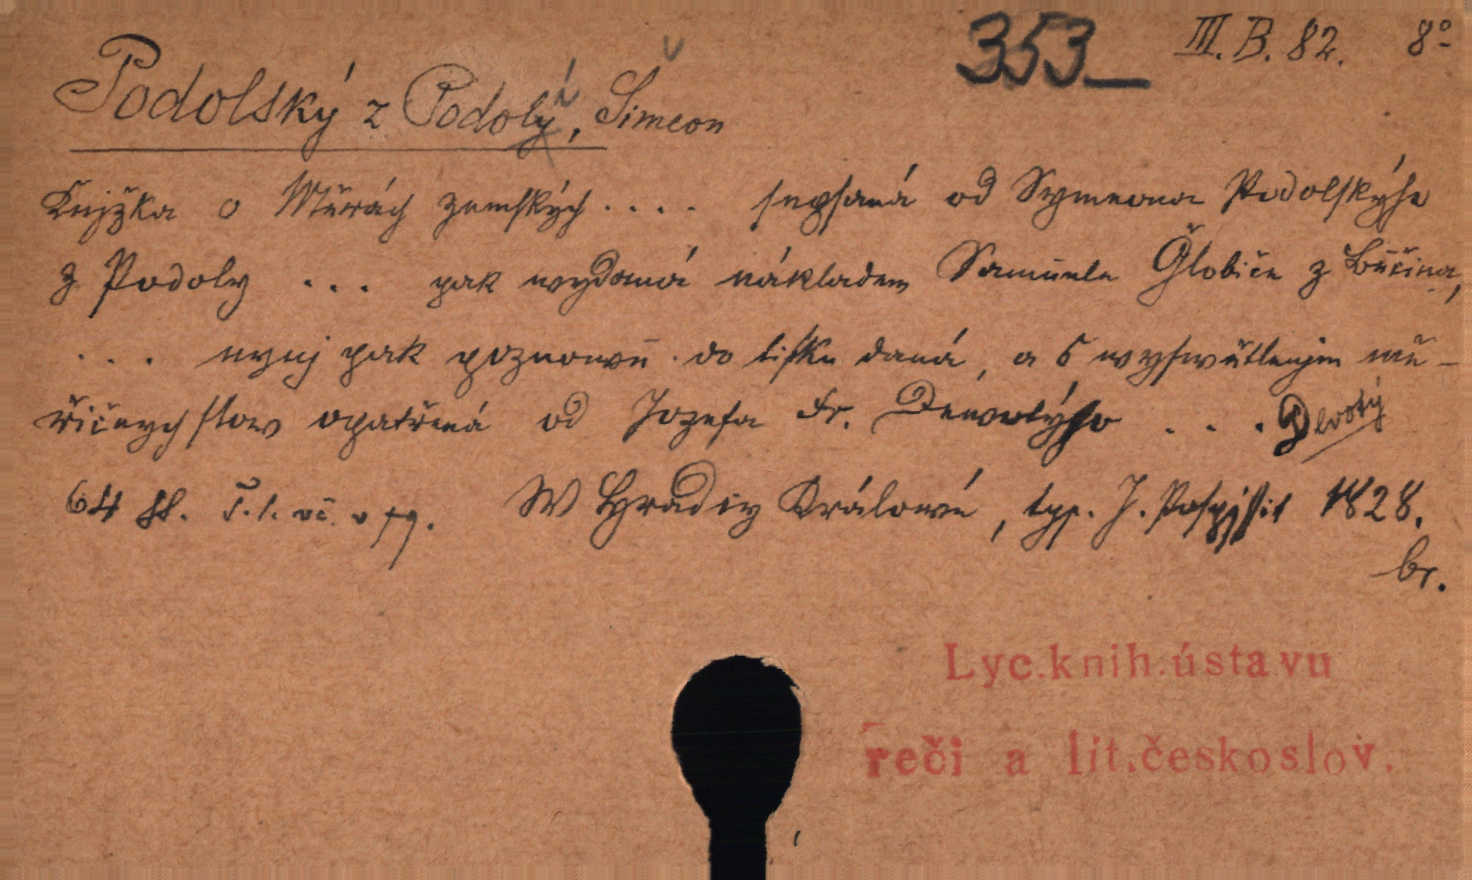 353 III. B. 82. 8º
Podolský z Podolí, Šimeon
Knjžka o Měrách zemských . . . . sepsaná od Symeona Podolskýho
z Podoly . . . pak wydaná nákladem Samuele Globice z Bučina,
. . . nynj pak poznowu do tisku daná, a s wyswětlenjm mě-
řičných slow opatřená od Jozefa Fr. Dewotýho . . . Devotý
64 W Hradcy Králowé, typ. J. Pospjšil 1828.
br.
Lyc.knih.ústavu
reči a lit.českoslov.